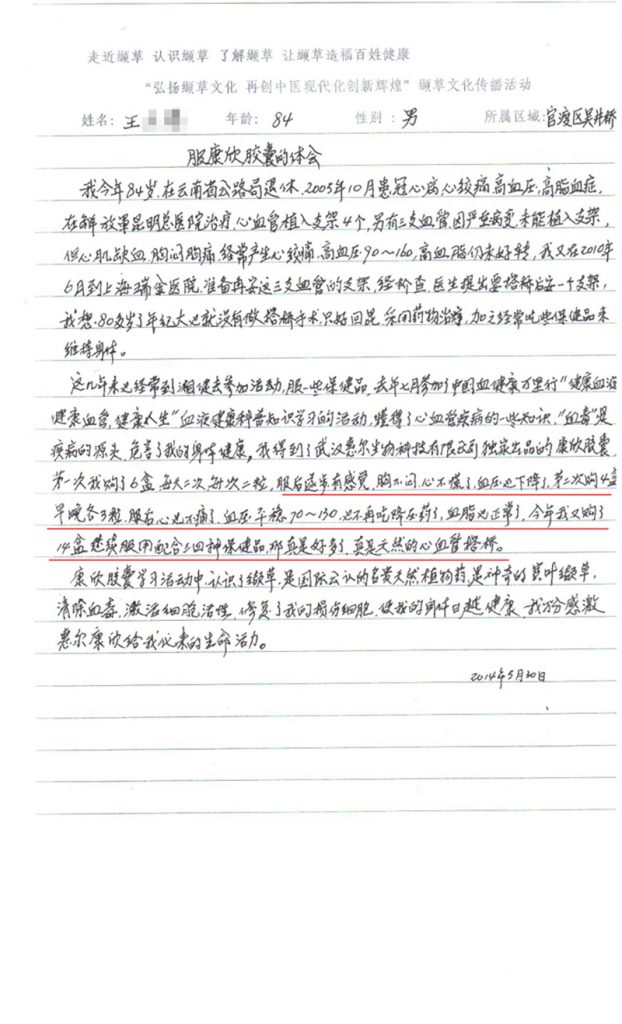 走近缬草 认识缬草 了解缬草 让缬草造福百姓健康
“弘扬缬草文化 再创中医现代化创新辉煌”缬草文化传播活动
姓名: 王 年龄: 84 性别: 男 所属区域: 官渡区吴井桥
服康欣胶囊的体会
我今年84岁,在云南省公路局退休,2005年10月患冠心病,心绞痛,高血压,高脂血症,
在解放军昆明总医院治疗,心血管植入支架4个,另有三支血管因严重病变未能植入支架,
但心肌缺血,胸闷胸痛,经常产生心绞痛,高血压90~160,高血脂仍未好转,我又在2010年
6月到上海瑞金医院,准备再安这三支血管的支架,经检查,医生提出要搭桥后安一个支架,
我想:80多岁了年纪大也就没有做搭桥手术,只好回昆,采用药物治疗,加之经常吃些保健品来
维持身体。
这几年来也经常到湘健去参加活动,服一些保健品,去年七月参加了中国血健康万里行“健康血液
健康血管,健康人生”血液健康科普知识学习的活动,懂得了心血管疾病的一些知识,“血毒”是
疾病的源头,危害了我的身体健康,我得到了武汉惠尔生物科技有限公司独家出品的康欣胶囊,
第一次我购了6盒,每天二次,每次二粒,服后逐步有感觉,胸不闷,心不慌了,血压也下降了,第二次购4盒
早晚各3粒,服后心也不痛了,血压平稳,70~130,也不再吃降压药了,血脂也正常了,今年我又购了
14盒继续服用配合三四种保健品,那真是好多了,真是天然的心血管搭桥。
康欣胶囊学习活动中,认识了缬草,是国际公认的名贵天然植物药,是神奇的宽叶缬草,
清除血毒,激活细胞活性,修复了我的损伤细胞,使我的身体日趋健康,我万分感激
惠尔康欣给我优来的生命活力。
2014年5月20日